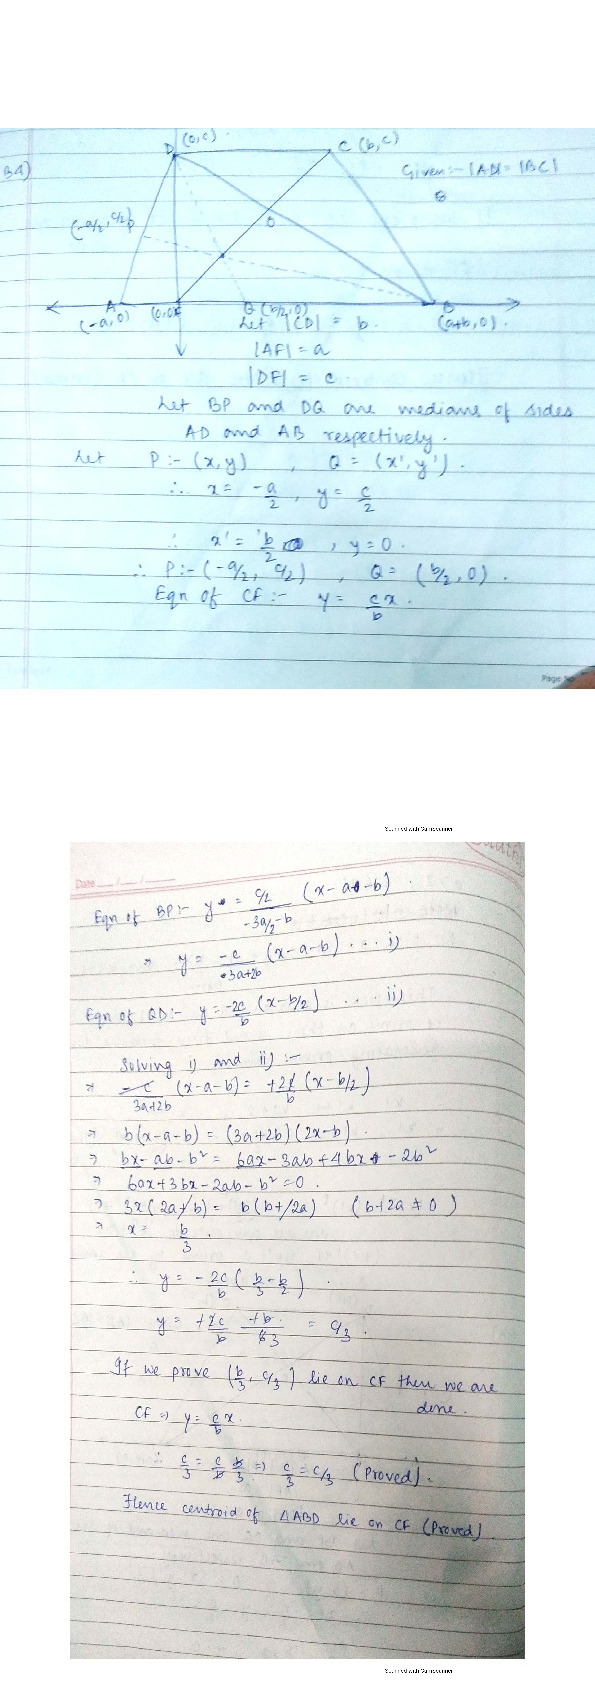 B4)
D (0,c)
C (b,c)
Given:- |AD| = |BC|
(-a/2, c/2) P
O
A
(-a,0)
(0,0)F
Q (b/2,0)
B
(a+b,0).
Let |CD| = b.
|AF| = a
|DF| = c.
Let BP and DQ are medians of sides
AD and AB respectively.
Let P:- (x,y) , Q = (x',y').
∴ x = -a/2 , y = c/2
∴ x' = b/2 , y = 0.
∴ P:- (-a/2, c/2) , Q = (b/2, 0).
Eqn of CF:- y = c/b x.
Page No
Scanned with CamScanner
Date __/__/__
Eqn of BP:- y = (c/2)/(-3a/2-b) (x-a-b).
⇒ y = -c/(3a+2b) (x-a-b) ... i)
Eqn of QD:- y = -2c/b (x-b/2) .... ii)
Solving i) and ii) :-
⇒ -c/(3a+2b) (x-a-b) = +2c/b (x-b/2)
⇒ b(x-a-b) = (3a+2b)(2x-b).
⇒ bx-ab-b² = 6ax-3ab+4bx-2b²
⇒ 6ax+3bx-2ab-b² = 0.
⇒ 3x(2a+b) = b(b+2a) (b+2a ≠ 0)
⇒ x = b/3.
∴ y = -2c/b (b/3 - b/2).
y = +2c/b +b/63 = c/3.
If we prove (b/3, c/3) lie on CF then we are
done.
CF ⇒ y = c/b x.
∴ c/3 = c/b b/3 ⇒ c/3 = c/3 (Proved).
Hence centroid of △ABD lie on CF (Proved).
Scanned with CamScanner